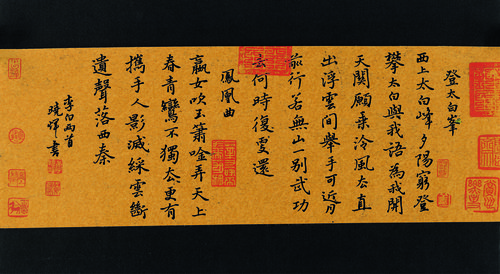 登太白峯
西上太白峰夕陽窮登
攀太白與我語為我開
天關願乘泠風去直
出浮雲間舉手可近月
前行若無山一別武功
去何時復更還
鳳凰曲
嬴女吹玉簫唫弄天上
春青鸞不獨去更有
攜手人影滅綵雲斷
遺聲落西秦
李白兩首
書